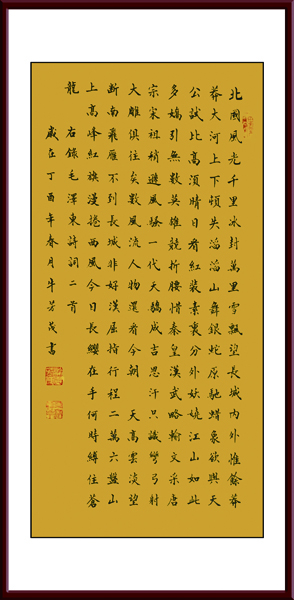 北國風光千里冰封萬里雪飄望長城内外惟餘莽
莽大河上下頓失滔滔山舞銀蛇原馳蜡象欲與天
公試比高須晴日看紅裝素裹分外妖嬈江山如此
多嬌引無數英雄競折腰惜秦皇漢武略輸文采唐
宗宋祖稍遜風騷一代天驕成吉思汗只識彎弓射
大雕俱往矣數風流人物還看今朝 天高雲淡望
斷南飛雁不到長城非好漢屈指行程二萬六盤山
上高峰紅旗漫捲西風今日長纓在手何時縛住蒼
龍 右錄毛澤東詩詞二首
歲在丁酉年春月牛芳茂書